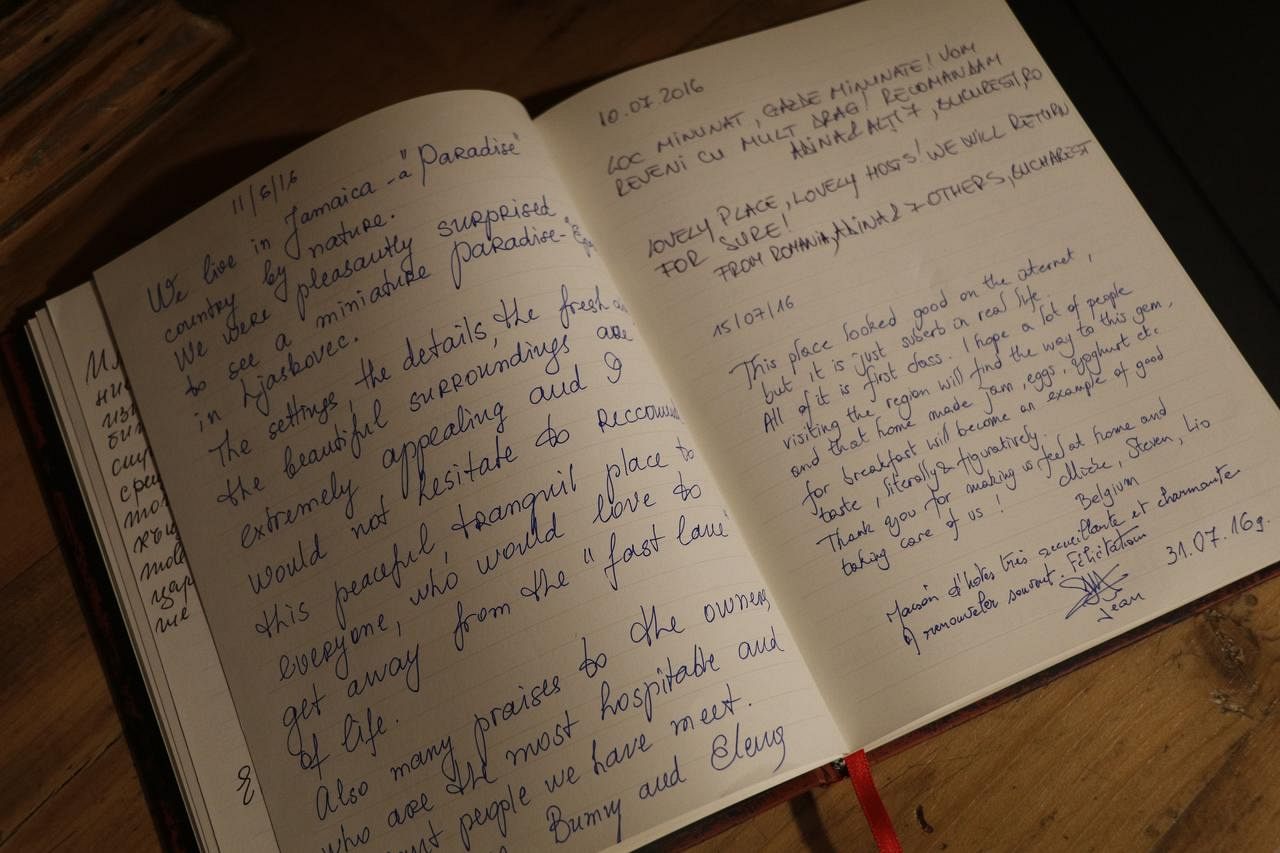 11/6/16
We live in Jamaica - a "Paradise"
country by nature.
We were pleasantly surprised
to see a miniature paradise-
in Ljaskovec.
The settings, the details, the fresh
the beautiful surroundings are
extremely appealing and I
would not hesitate to
this peaceful, tranquil place to
everyone, who would love to
get away from the "fast lane"
of life.
Also many praises to the owners
who are the most hospitable and
people we have meet.
and Eleng
10.07.2016
LOC MINUNAT, GAZDE MINUNATE! VOM
REVENI CU MULT DRAG! RECOMANDAM
ADINA & ALTI 7, BUCURESTI, RO
LOVELY PLACE, LOVELY HOSTS! WE WILL RETURN
FOR SURE!
FROM ROMANIA, ADINA & 7 OTHERS, BUCHAREST
15/07/16
This place looked good on the internet,
but it is just suberb in real life.
All of it is first class. I hope a lot of people
visiting the region will find the way to this gem,
and that home made jam, eggs, yoghurt etc.
for breakfast will become an example of good
taste, literally & figuratively.
Thank you for making us feel at home and
taking care of us! Steven,
Belgium
Maison d'hôtes très accueillante et charmante
A renouveler souvent. Félicitation
Jean
31.07.16g.